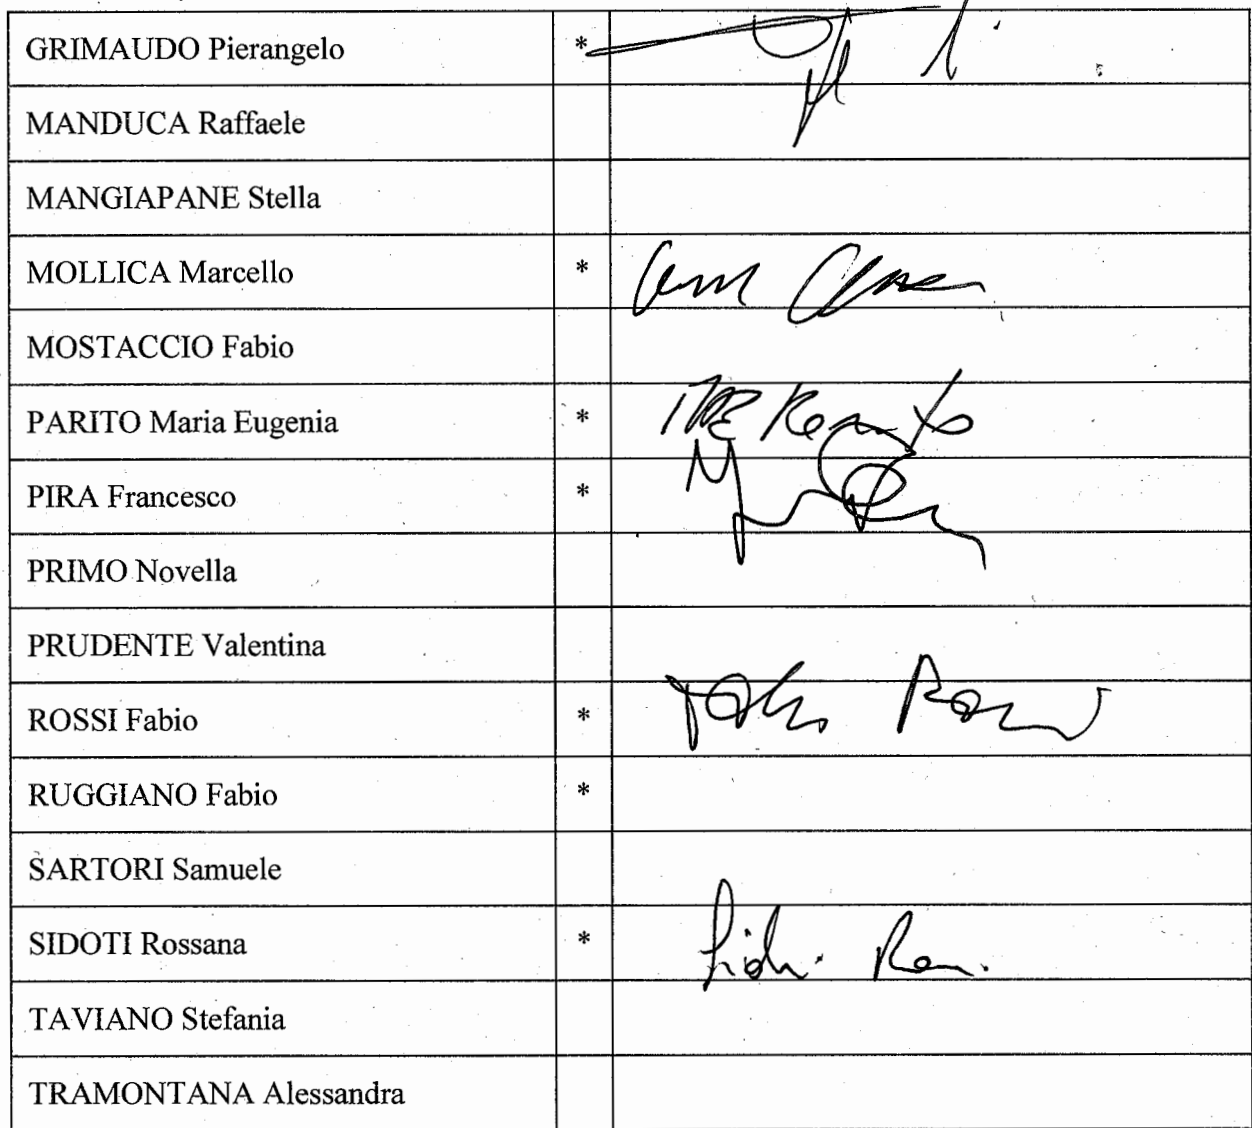 GRIMAUDO Pierangelo *
MANDUCA Raffaele
MANGIAPANE Stella
MOLLICA Marcello *
MOSTACCIO Fabio
PARITO Maria Eugenia *
PIRA Francesco *
PRIMO Novella
PRUDENTE Valentina
ROSSI Fabio *
RUGGIANO Fabio *
SARTORI Samuele
SIDOTI Rossana *
TAVIANO Stefania
TRAMONTANA Alessandra